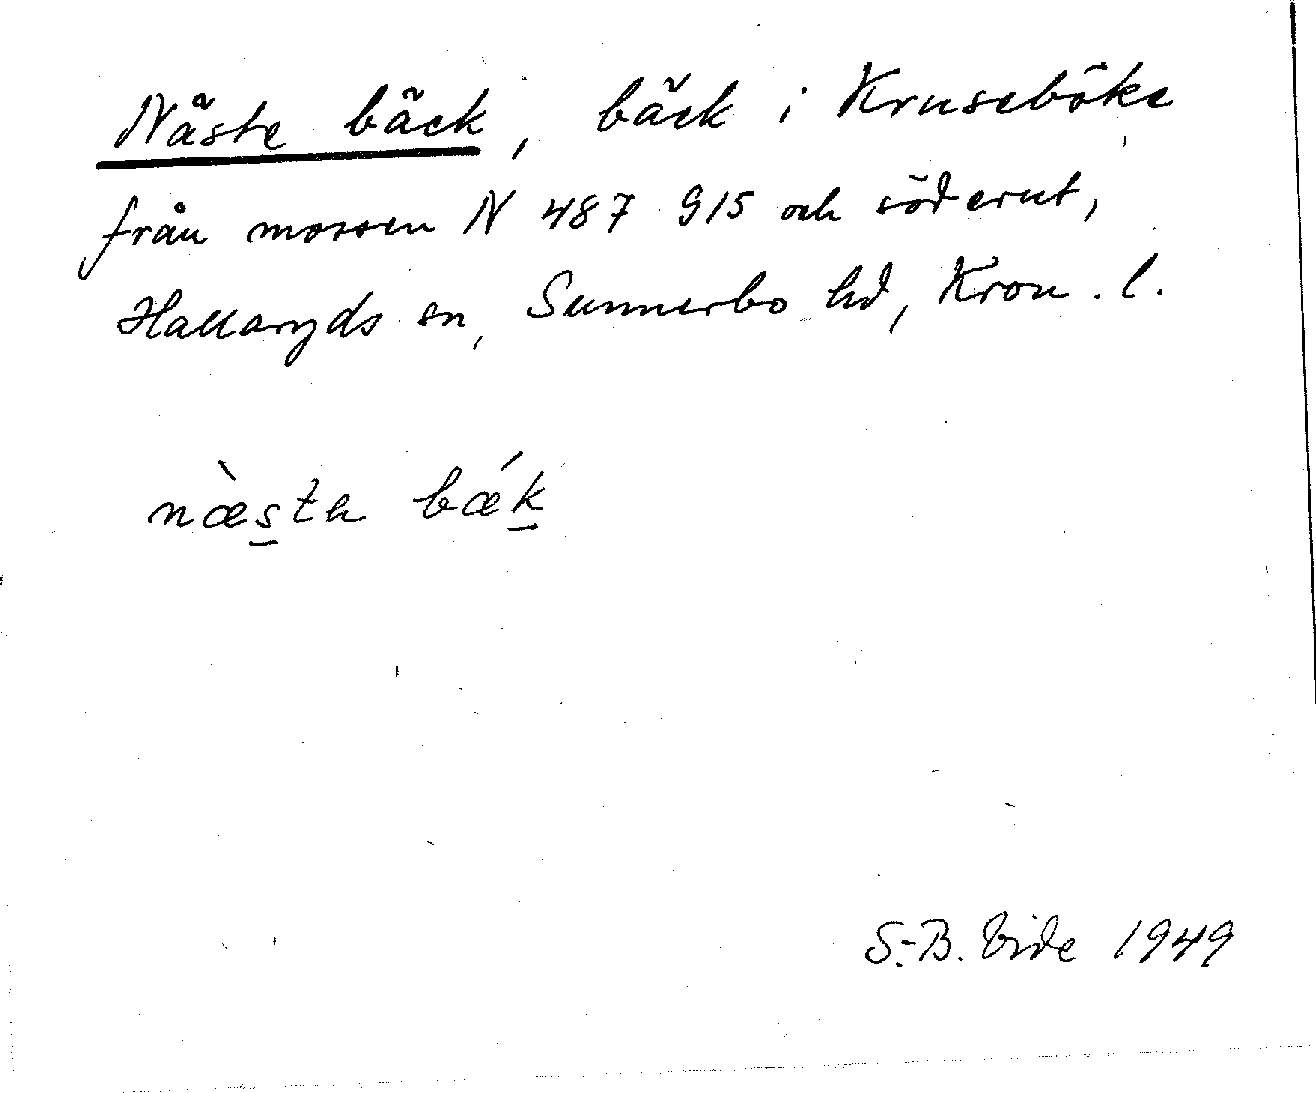 Näste bäck, bäck i Kruseböke
från mossen N 487 915 och söderut,
Hallaryds sn, Sunnerbo hd, Kron. l.
næ̀sta bǽk
S.-B. Vide 1949